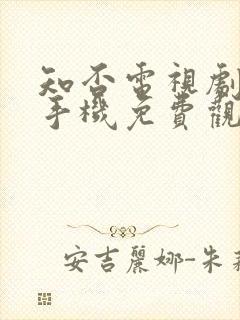 知否電視劇
手機免費觀
安吉麗娜-朱